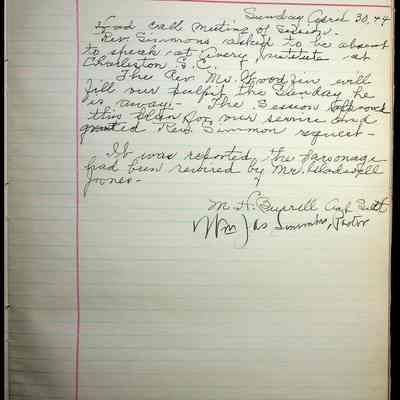 Sunday April 30, 44
Had call meeting of Session.
Rev. Simmons asked to be absent
to speak at Avery Institute at
Charleston S.C.
The Rev. Mr. Goodzin will
fill our pulpit the Sunday he
is away. - The Session
this plan for our service and
granted Rev. Simmon request -
It was reported the Parsonage
had been rewired by Mr.
Jones -
M. H. Burrell
Wm Jas Simmons, Pastor